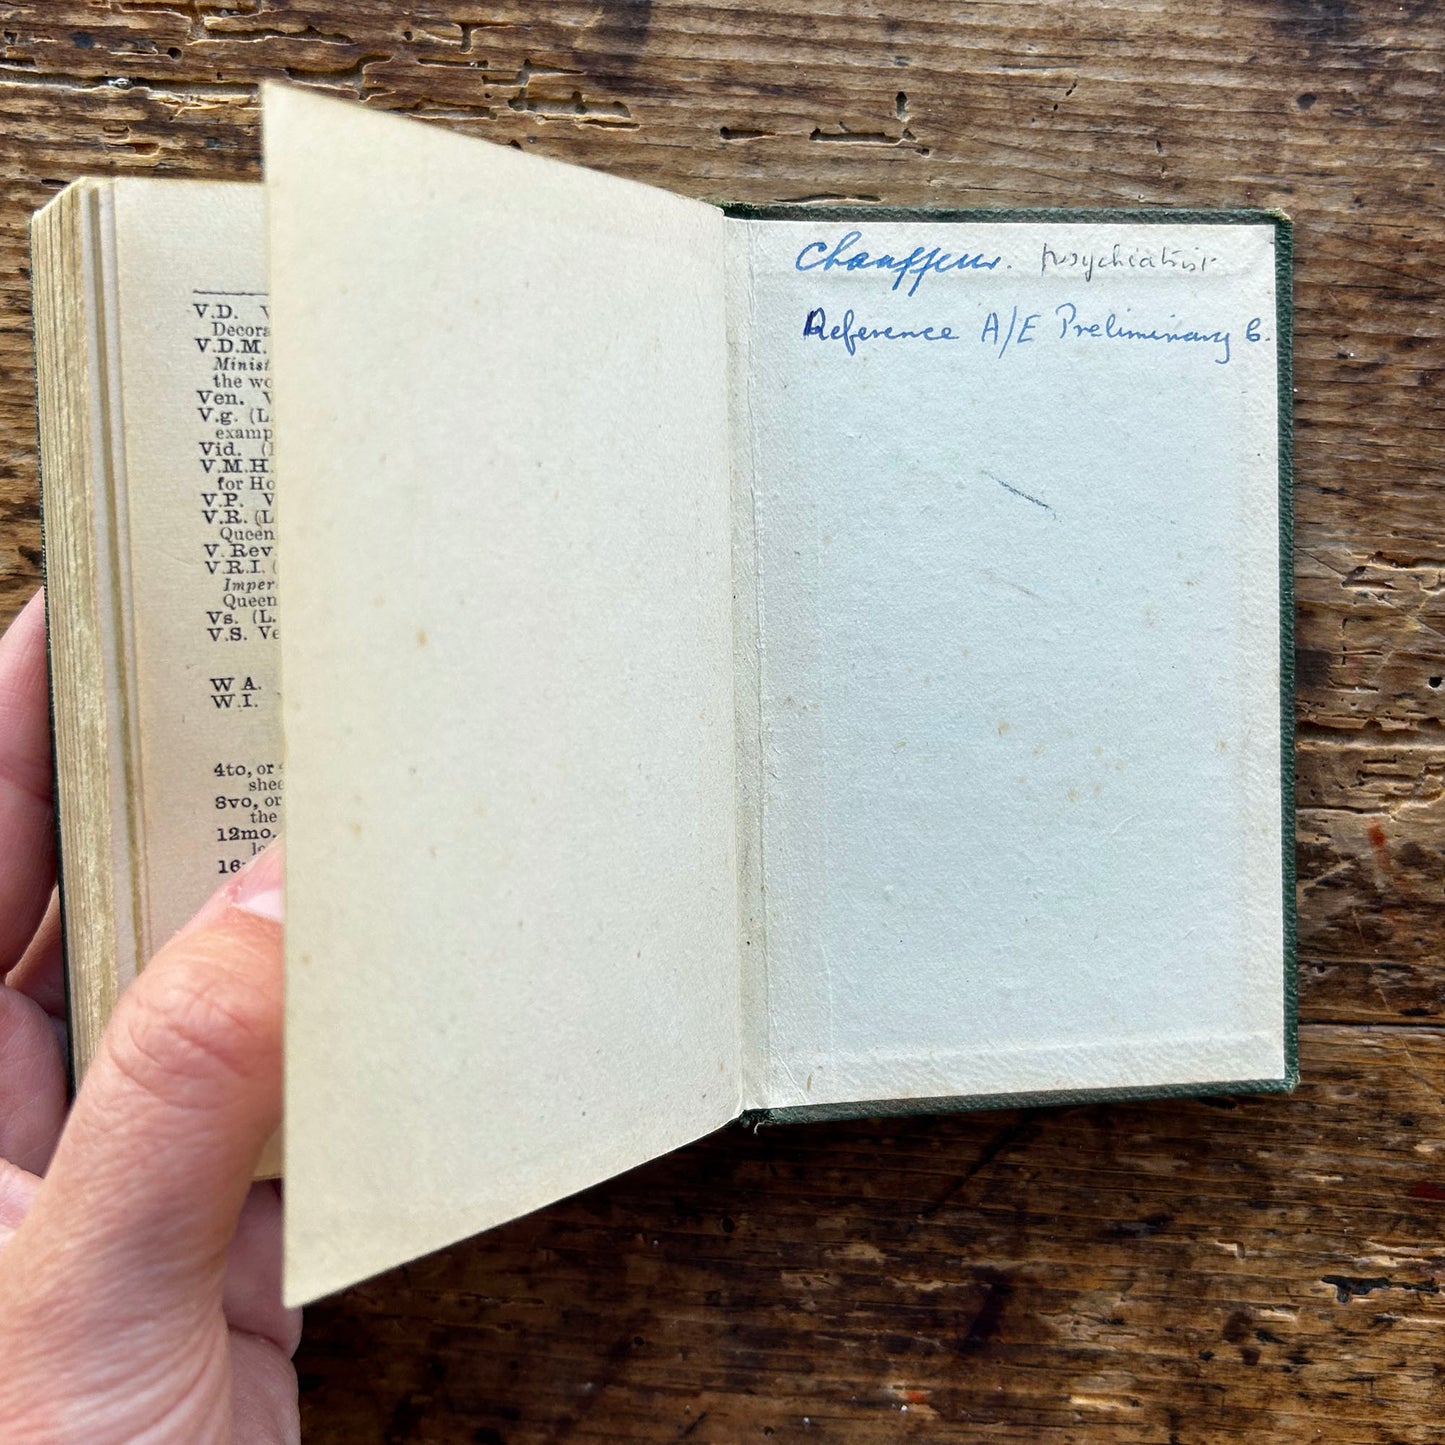 V.D. V
Decora
V.D.M.
Minist
the wo
Ven. V
V.g. (L.
examp
Vid. (
V.M.H.
for Ho
V.P. V
V.R. (L
Queen
V. Rev.
V.R.I. (
Imper
Queen
Vs. (L.
V.S. Ve
W A.
W.I.
4to, or
shee
8vo, or
the
12mo.
le
16
Chauffeur. psychiatrist
Reference A/E Preliminary 6.